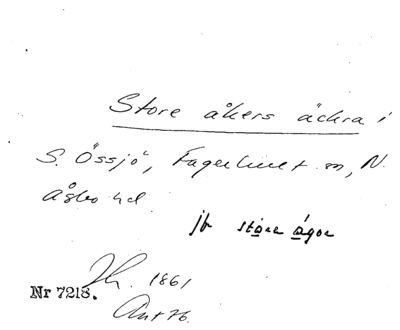 Store åkers äckra i
S. Össjö, Fagerhult sn, N.
Åsbo hd
jb store ågor
1861
Nr 7218.